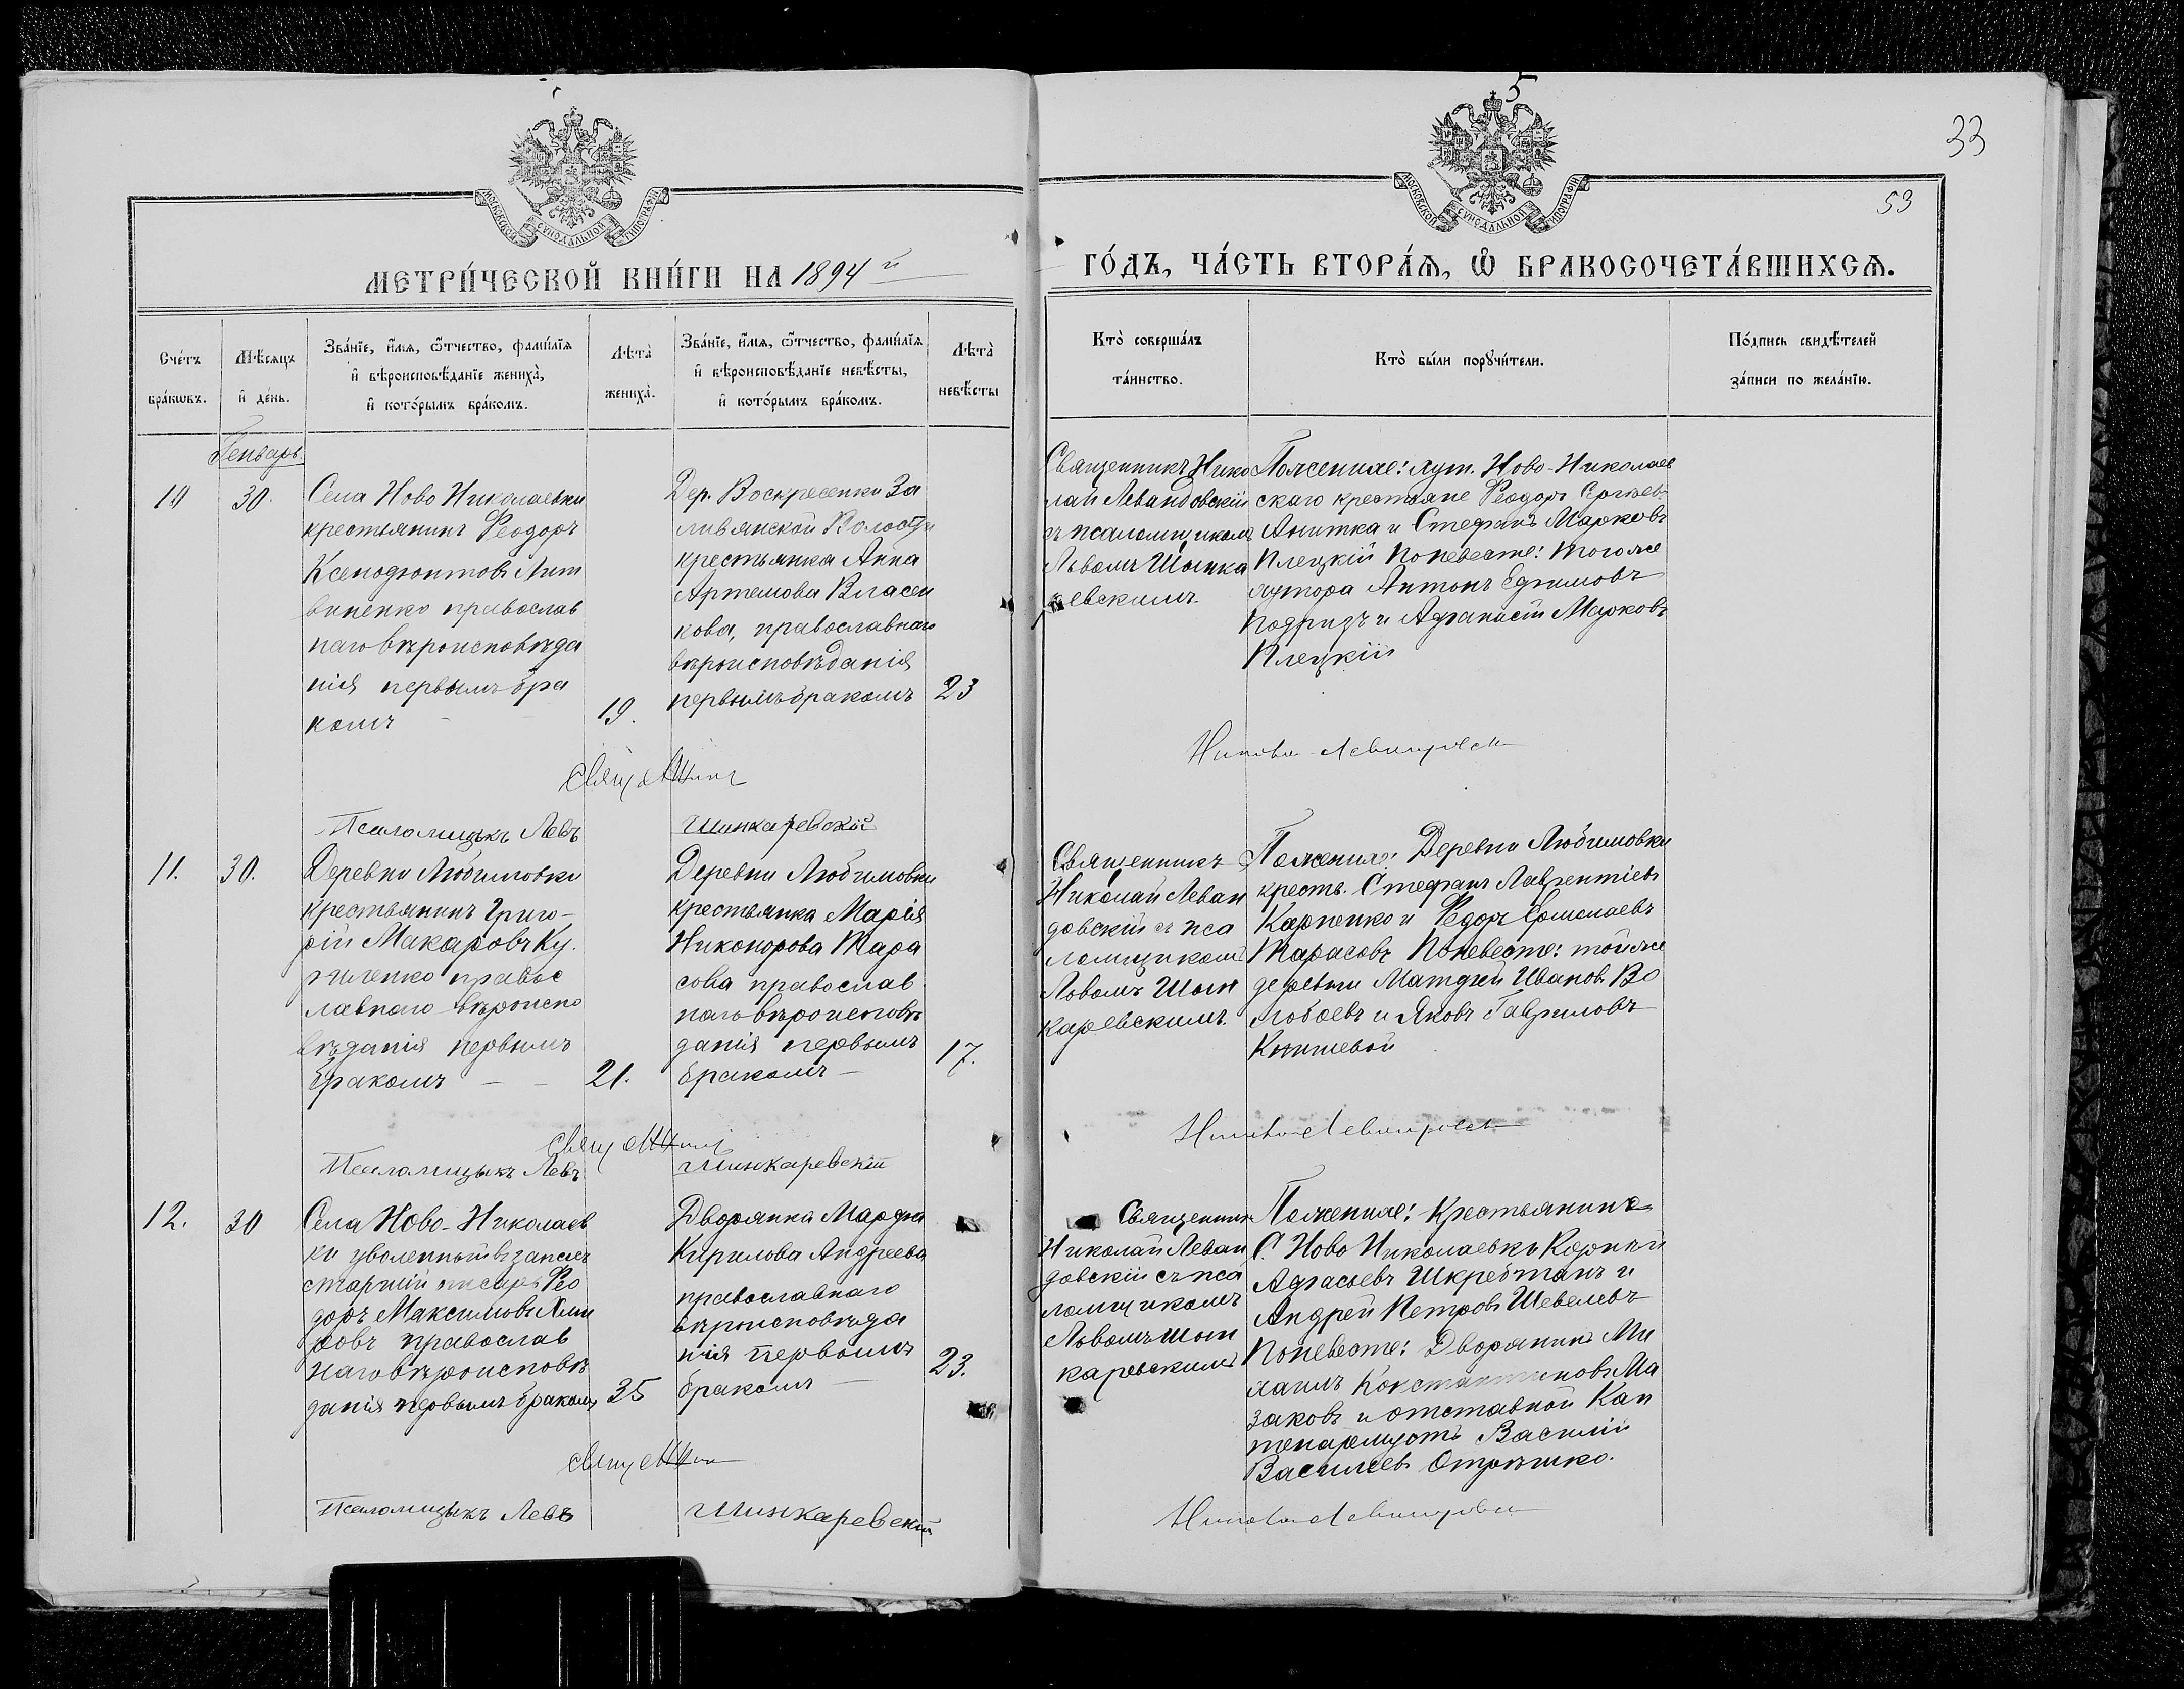 5
33
53
МОСКОВСКОЙ СѴНОДАЛЬНОЙ ТИПОГРАФІИ
МОСКОВСКОЙ СѴНОДАЛЬНОЙ ТИПОГРАФІИ
МЕТРИ́ЧЕСКОЙ КНИ́ГИ НА 1894 й
ГО́ДЪ, ЧА́СТЬ ВТОРА́Ѧ, Ѽ БРАКОСОЧЕТА́ВШИХСѦ.
Сче́тъ бра́кѡвъ.
Мѣ́сяцъ и҆ де́нь.
Зва́нїе, и҆́мѧ, ѻ҆́тчество, фами́лїѧ
и҆ вѣроисповѣ́данїе жениха̀,
и҆ кото́рымъ бра́комъ.
Лѣта̀ жениха̀.
Зва́нїе, и҆́мѧ, ѻ҆́тчество, фами́лїѧ
и҆ вѣроисповѣ́данїе невѣ́сты,
и҆ кото́рымъ бра́комъ.
Лѣта̀ невѣ́сты
Кто̀ соверша́лъ та́инство.
Кто̀ бы́ли порꙋчи́тели.
По́дпись свидѣ́телей
за́писи по жела́нїю.
Генварь.
10
30.
Села Ново Николаевки
крестьянинъ Ѳеодоръ
Ксенофонтовъ Лит
виненко православ
наго вѣроисповѣда
нія первымъ бра
комъ
19.
Дер. Воскресенки За
ливянской Волости
крестьянка Анна
Артемова Власен
кова, православнаго
вѣроисповѣданія
первымъ бракомъ
23
Священникъ Нико
лай Левандовскій
съ псаломщикомъ
Львомъ Шинка
ревскимъ.
По женихе: хут. Ново-Николаев
скаго крестьяне Ѳеодоръ Сергѣевъ
Анитка и Стефанъ Марковъ
Плецкій по невесте: того же
хутора Антонъ Ефимовъ
Подризъ и Афанасій Марковъ
Плецкій
Свящ
Псаломщикъ Левъ Шинкаревскій
11.
30.
Деревни Любимовки
крестьянинъ Григо-
рій Макаровъ Ку
риленко правос
лавнаго вѣроиспо
вѣданія первымъ
бракомъ
21.
Деревни Любимовки
крестьянка Марія
Никонорова Тара
сова православ
наго вѣроисповѣ
данія первымъ
бракомъ
17.
Священникъ
Николай Леван
довскій съ пса
ломщикомъ
Львомъ Шин
каревскимъ.
По женихе: Деревни Любимовки
кресть. Стефанъ Лаврентіевъ
Карпенко и Федоръ Ермолаевъ
Тарасовъ По невесте: той же
деревни Матфей Ивановъ Во
лобоевъ и Яковъ Гавриловъ
Книшевой
Свящ
Псаломщикъ Левъ Шинкаревскій
12.
30
Села Ново-Николаев
ки уволенный въ запасъ
старшій писарь Ѳео
доръ Максимовъ
православ
наго вѣроисповѣ
данія первымъ бракомъ
35
Дворянка Марфа
Кирилова Андреева
православнаго
вѣроисповѣда
нія первымъ
бракомъ
23.
Священникъ
Николай Леван
довскій съ пса
ломщикомъ
Львомъ Шин
каревскимъ
По женихе: Крестьянинъ
С. Ново Николаевкъ Корнѣй
Шкребтанъ и
Андрей Петровъ Шевелевъ
По невесте: Дворянинъ Ми
хаилъ Константиновъ Ма
заковъ и отставной Кап
тенармусъ Василій
Васильевъ
Свящ
Псаломщикъ Левъ Шинкаревскій